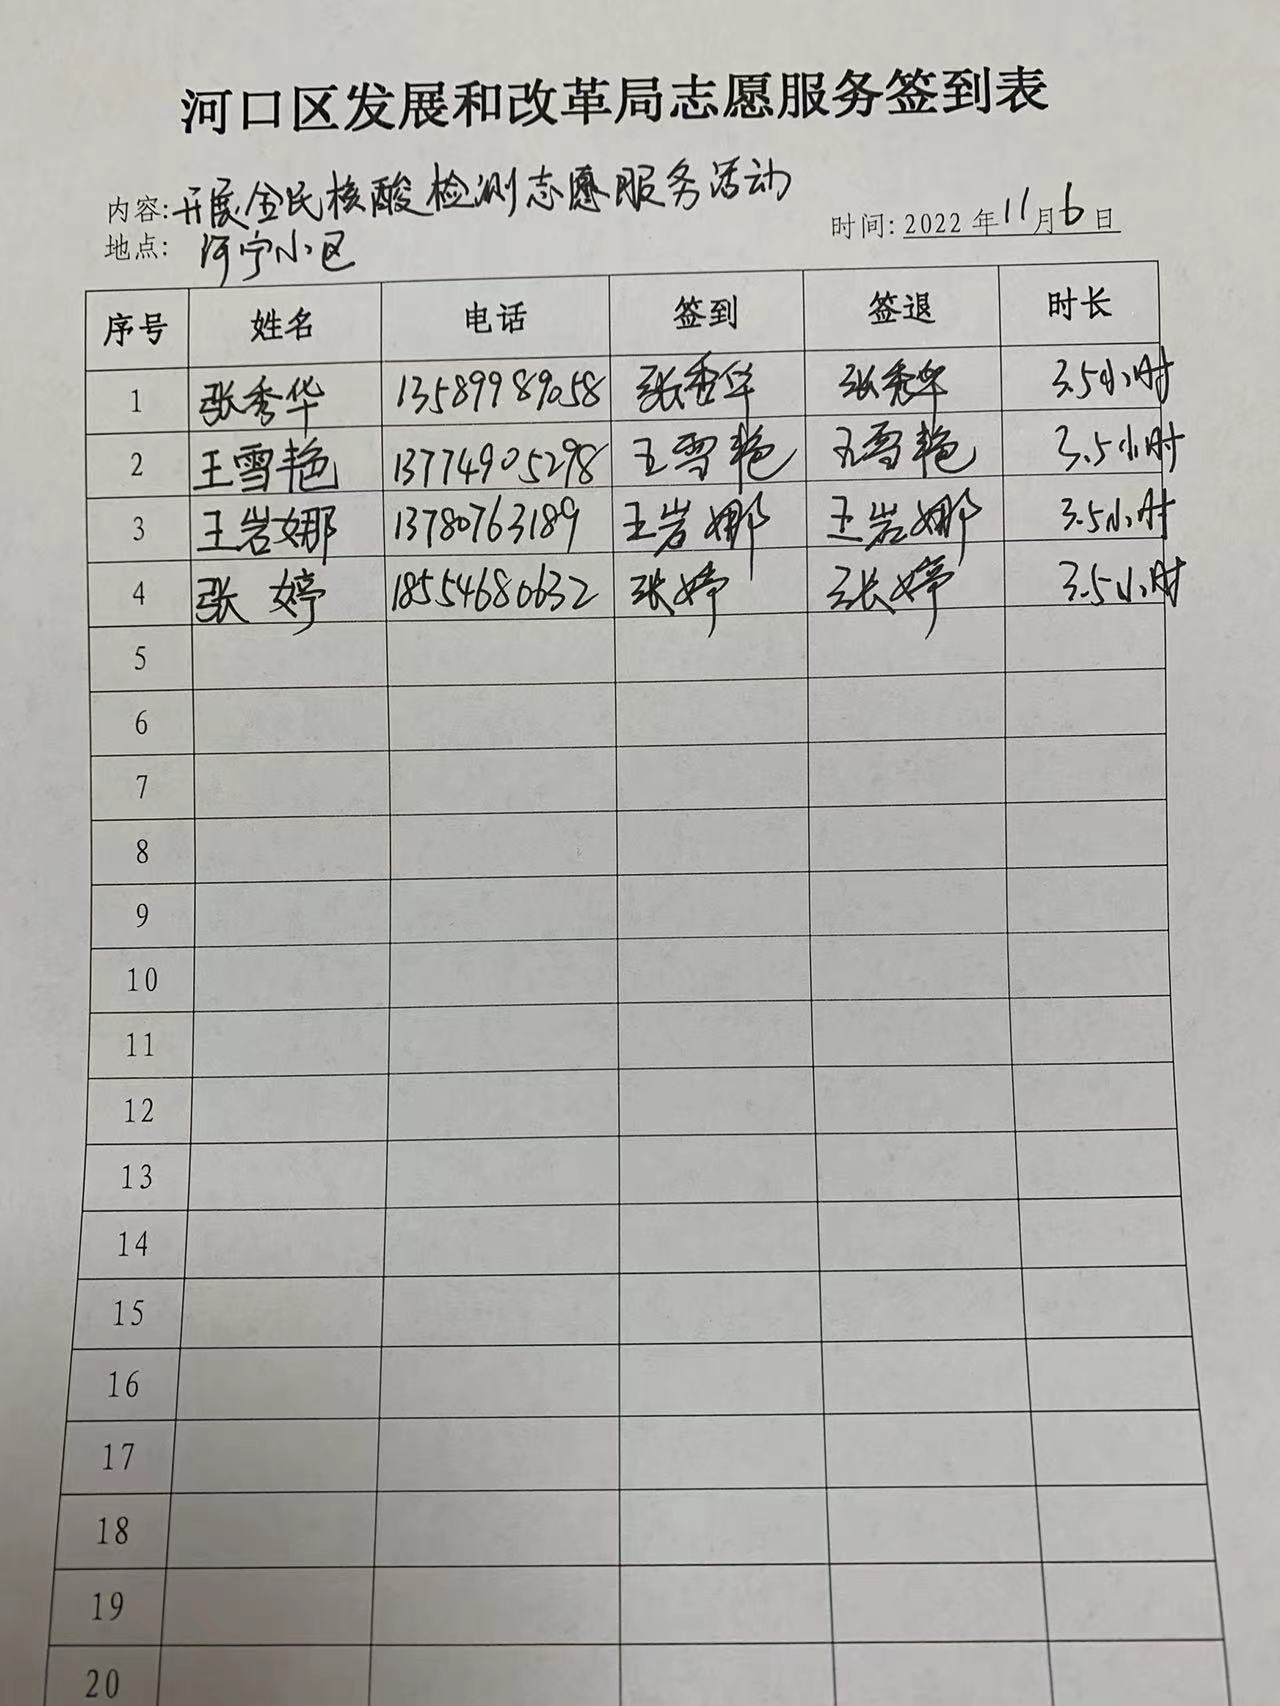 河口区发展和改革局志愿服务签到表
内容:开展全民核酸检测志愿服务活动
地点: 河宁小区
时间: 2022 年 11 月 6 日
序号 姓名 电话 签到 签退 时长
1 张秀华 13589989058 张秀华 张秀华 3.5小时
2 王雪艳 13774905298 王雪艳 王雪艳 3.5小时
3 王岩娜 13780763189 王岩娜 王岩娜 3.5小时
4 张婷 18554680632 张婷 张婷 3.5小时
5
6
7
8
9
10
11
12
13
14
15
16
17
18
19
20